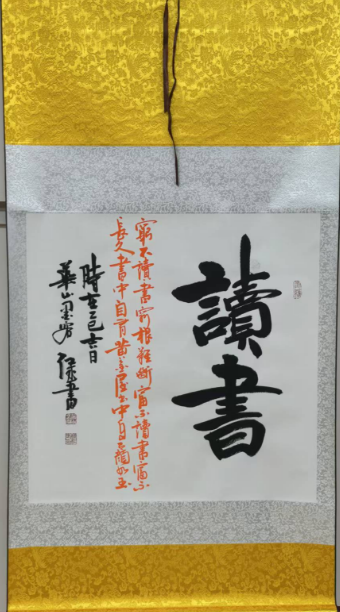 讀書
窮不讀書窮根難斷富不讀書富不
長久書中自有黃金屋書中自有顏如玉
時在乙巳吉日
華山
書